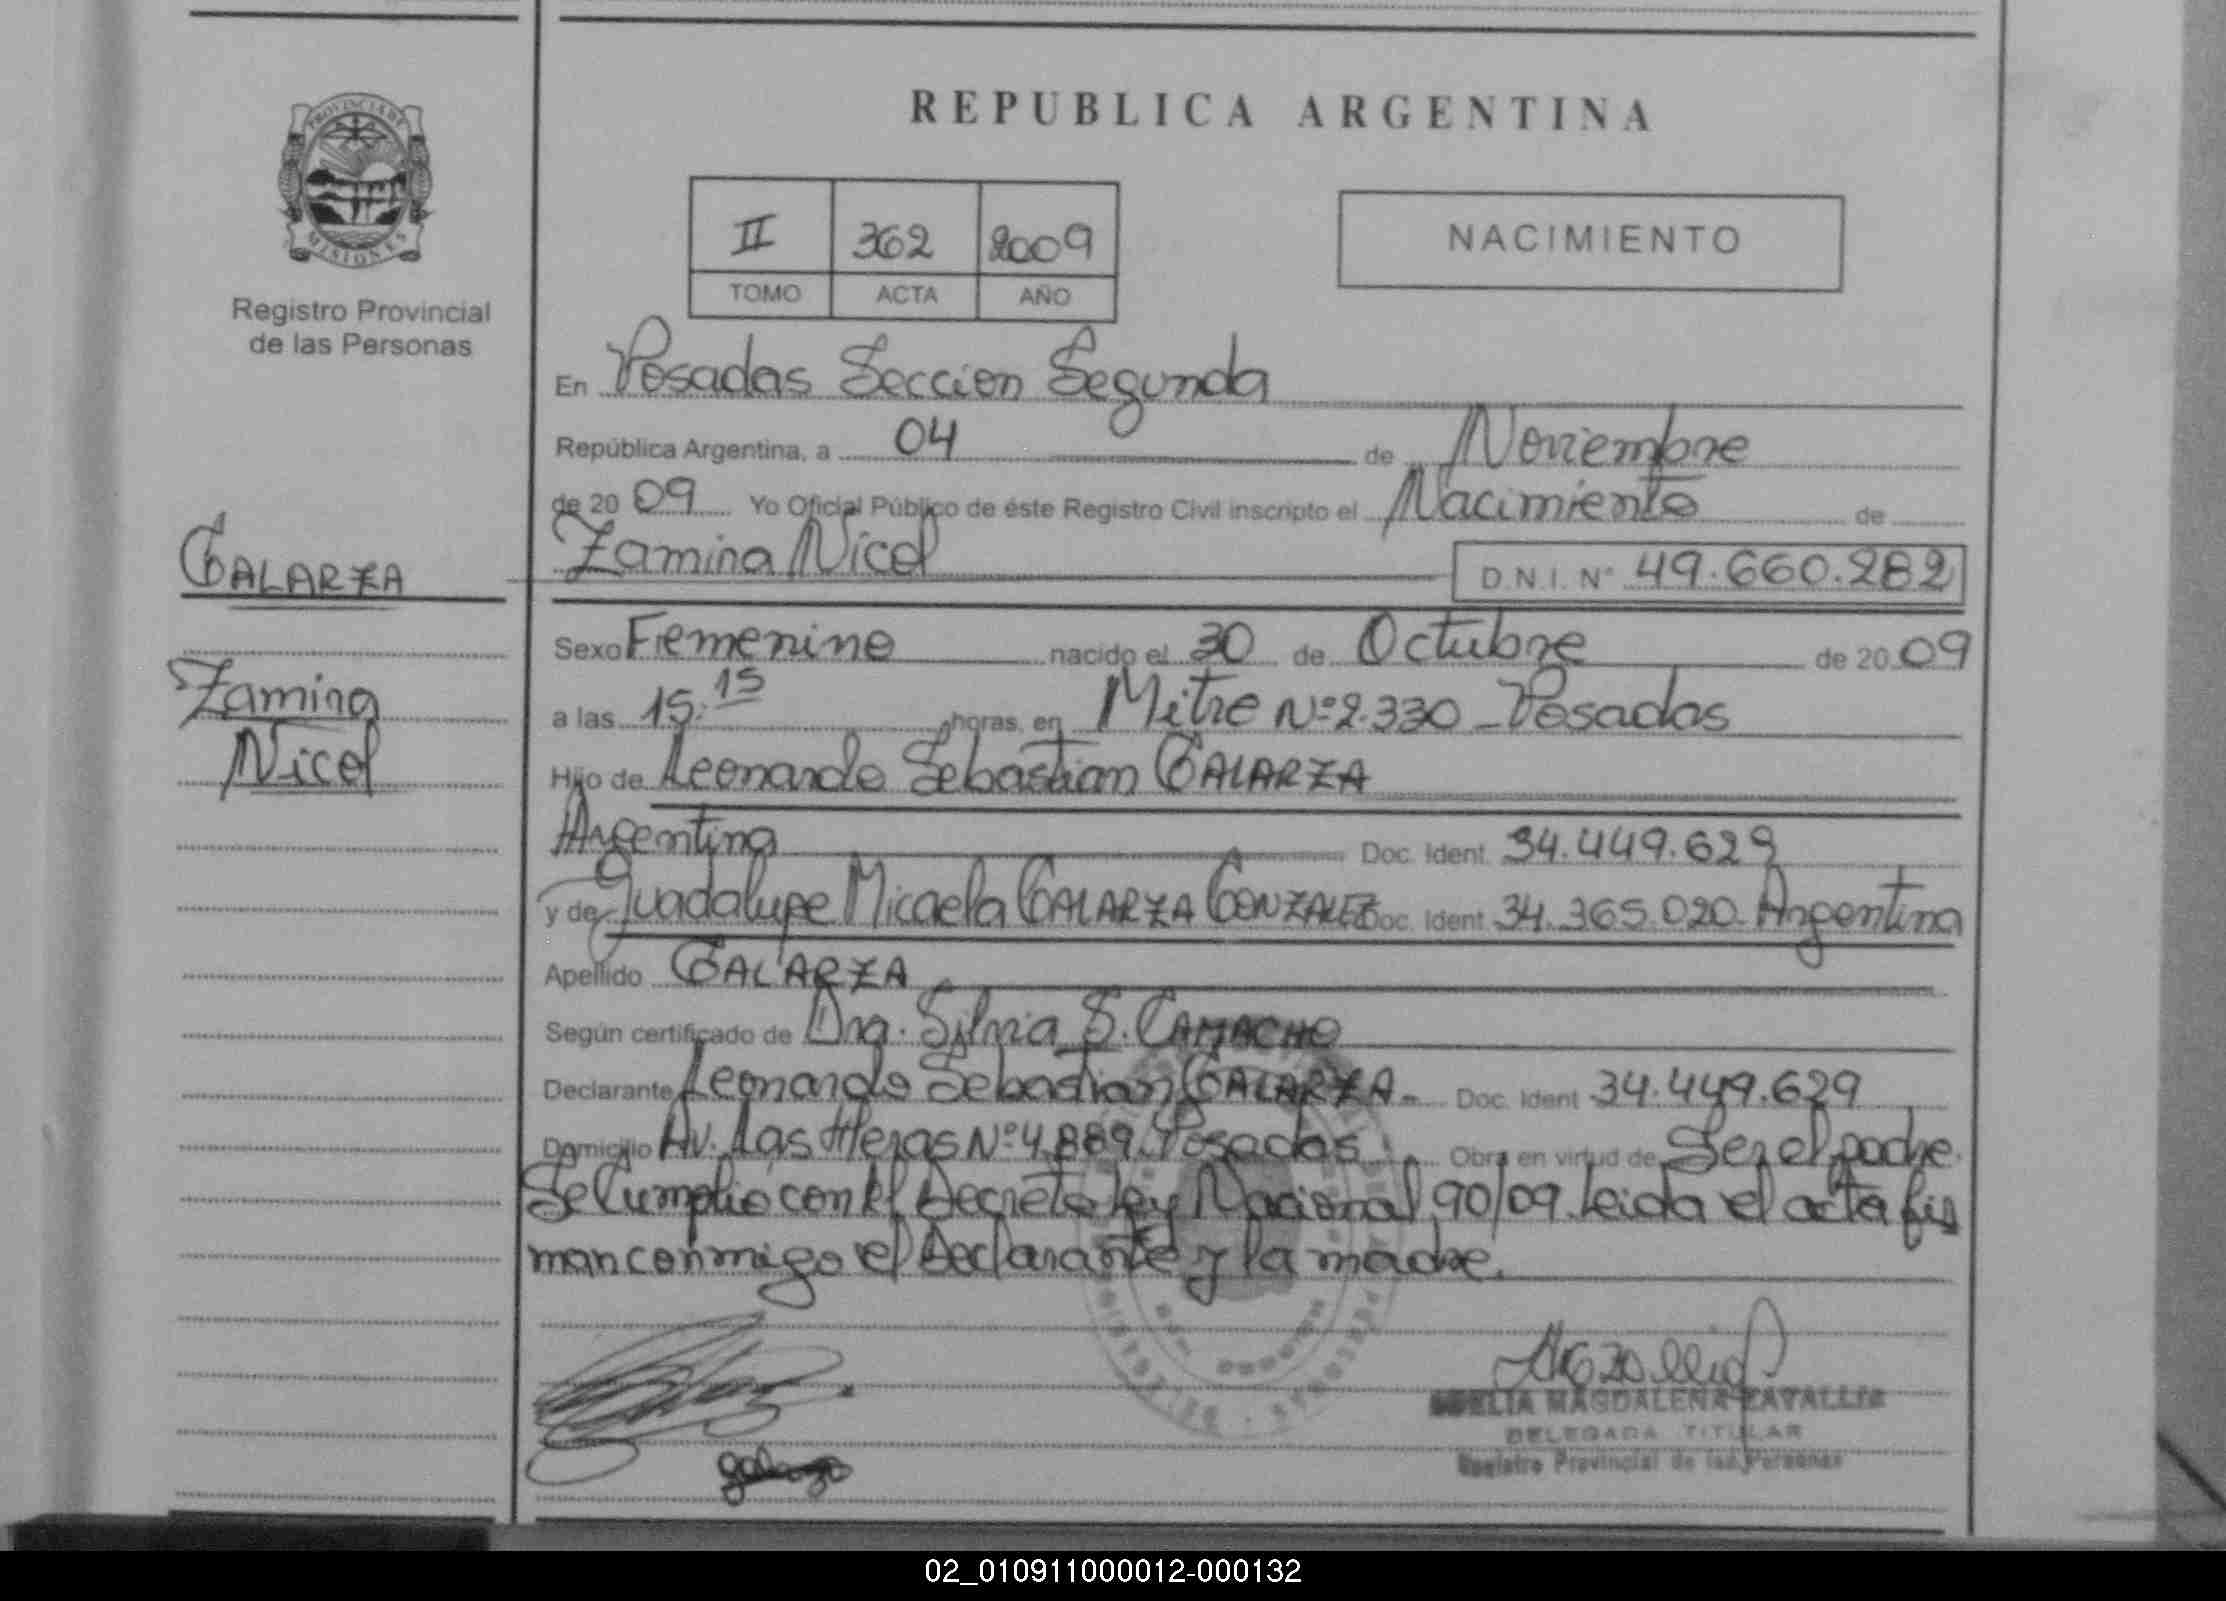 REPUBLICA ARGENTINA
PROVINCIA DE
MISIONES
Registro Provincial
de las Personas
II 362 2009
TOMO ACTA AÑO
NACIMIENTO
En Posadas Seccion Segunda
República Argentina, a 04 de Noviembre
de 20 09 Yo Oficial Público de éste Registro Civil inscripto el Nacimiento de
Zamira Nicol D.N.I. N° 49.660.282
GALARZA
Zamira
Nicol
Sexo Femenino nacido el 30 de Octubre de 20 09
a las 15:15 horas, en Mitre Nº 2.330 - Posadas
Hijo de Leonardo Sebastian GALARZA
Argentina Doc. Ident. 34.449.629
y de Guadalupe Micaela GALARZA GONZALEZ Doc. Ident. 34.365.020 Argentina
Apellido GALARZA
Según certificado de Dra. Silvia S. CAMACHO
Declarante Leonardo Sebastian GALARZA.- Doc. Ident 34.449.629
Domicilio Av. Las Heras Nº 4.889. Posadas Obra en virtud de Ser el padre.
Se Cumplio con el Decreto Ley Nacional 90/09. Leida el acta fir
man conmigo el Declarante y la madre.
galarza
MAGDALENA ZAVALLIA
DELEGADA TITULAR
Registro Provincial de las Personas
02_010911000012-000132